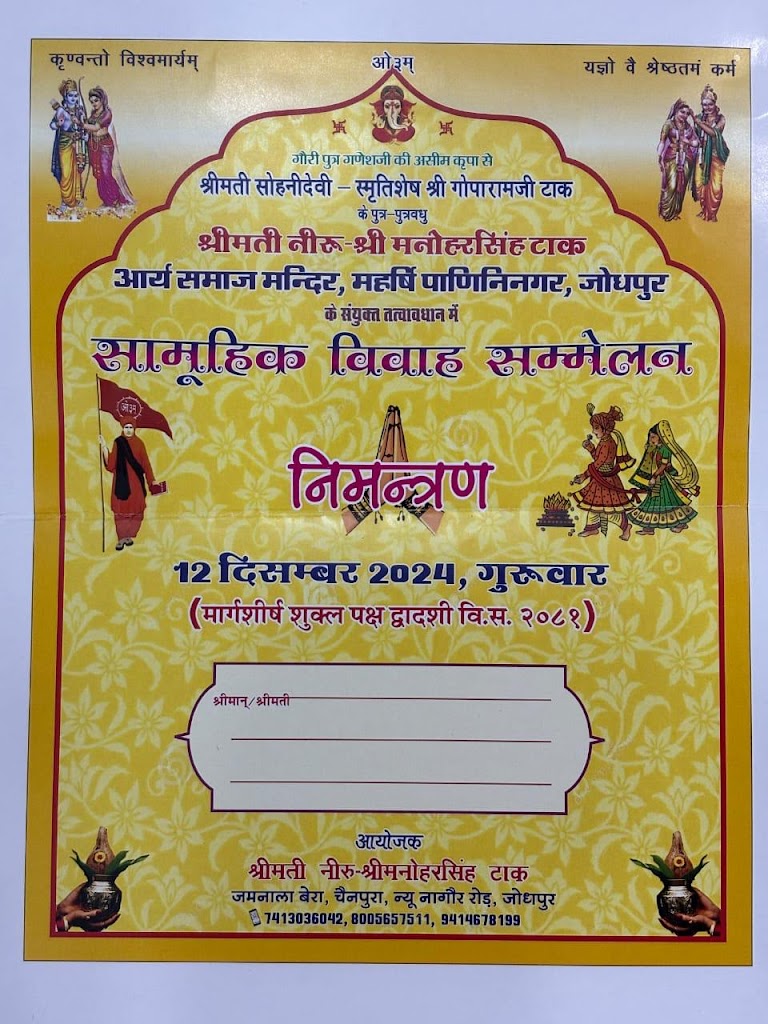 कृण्वन्तो विश्वमार्यम्
ओ३म्
यज्ञो वै श्रेष्ठतमं कर्म
गौरी पुत्र गणेशजी की असीम कृपा से
श्रीमती सोहनीदेवी – स्मृतिशेष श्री गोपारामजी टाक
के पुत्र-पुत्रवधु
श्रीमती नीरू-श्री मनोहरसिंह टाक
आर्य समाज मन्दिर, महर्षि पाणिनिनगर, जोधपुर
के संयुक्त तत्वावधान में
सामूहिक विवाह सम्मेलन
ओ३म्
निमन्त्रण
12 दिसम्बर 2024, गुरूवार
(मार्गशीर्ष शुक्ल पक्ष द्वादशी वि.स. २०८१)
श्रीमान्/श्रीमती
आयोजक
श्रीमती नीरु-श्रीमनोहरसिंह टाक
जमनाला बेरा, चैनपुरा, न्यू नागौर रोड़, जोधपुर
7413036042, 8005657511, 9414678199